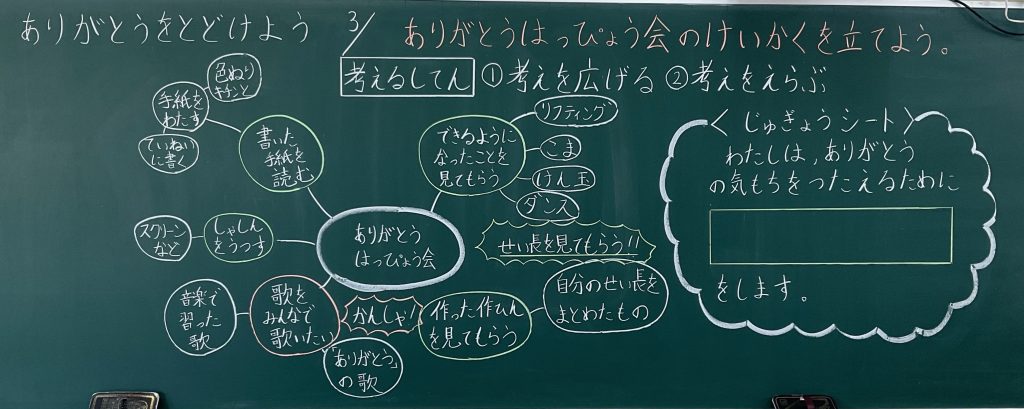 ありがとうをとどけよう
3/
ありがとうはっぴょう会のけいかくを立てよう。
考えるしてん ①考えを広げる ②考えをえらぶ
色ぬり
キチンと
手紙を
わたす
ていねい
に書く
書いた
手紙を
読む
できるように
なったことを
見てもらう
リフティング
こま
けん玉
ダンス
せい長を見てもらう!!
ありがとう
はっぴょう会
スクリーン
など
しゃしん
をうつす
音楽で
習った
歌
歌を
みんなで
歌いたい
かんしゃ!
「ありがとう」
の歌
作った作ひん
を見てもらう
自分のせい長を
まとめたもの
〈じゅぎょうシート〉
わたしは,ありがとう
の気もちをつたえるために
をします。